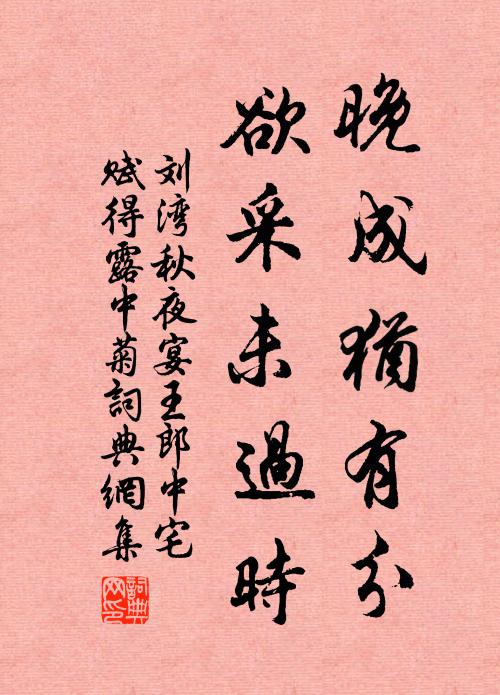 晚成猶有分
欲采未過時
刘湾秋夜宴王郎中宅
赋得露中菊詞典網集